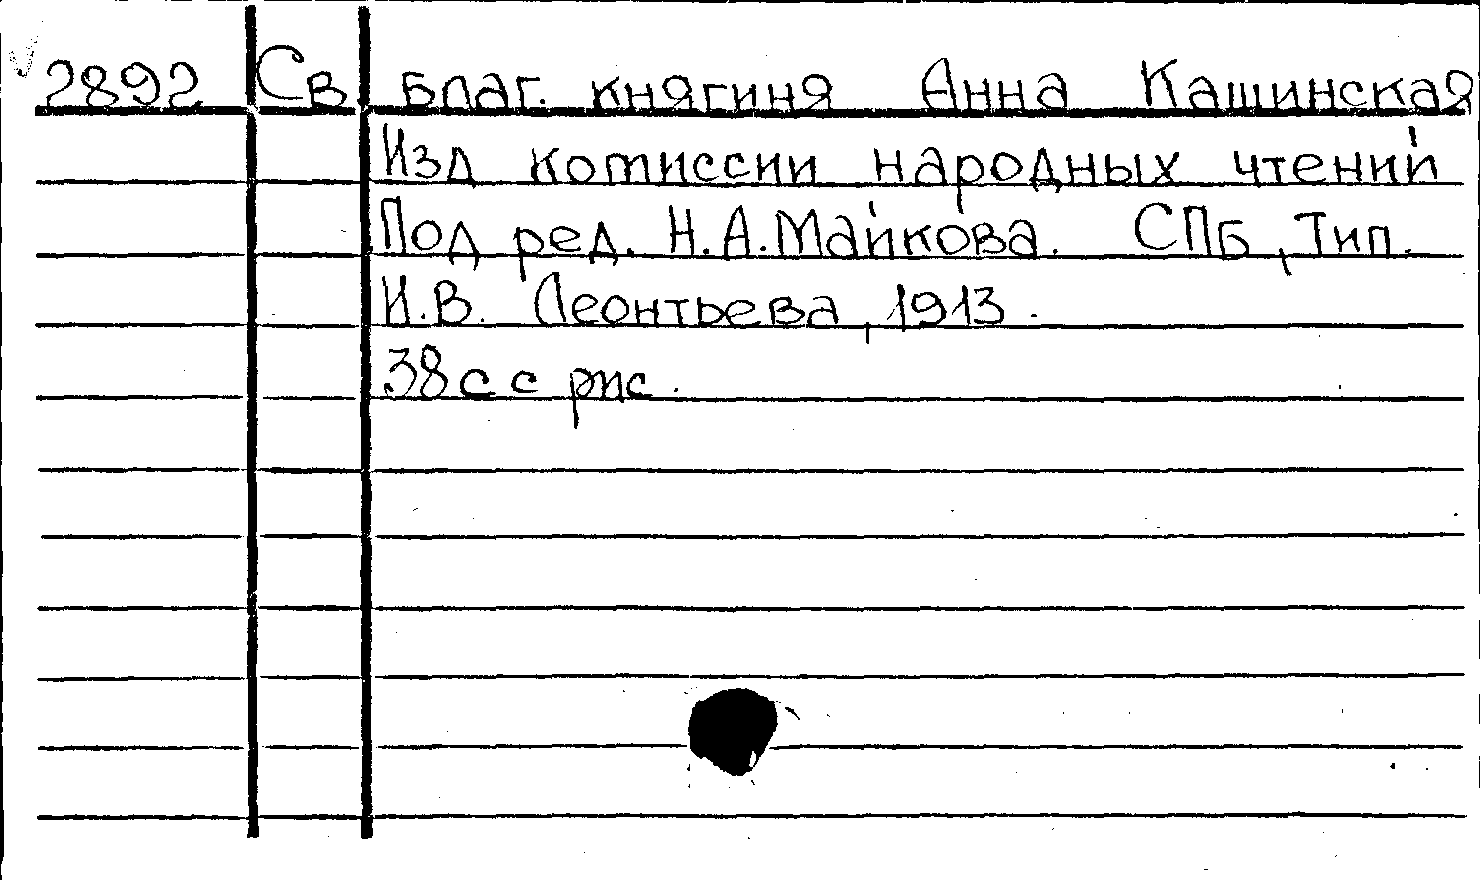 2892 Св. Благ. княгиня Анна Кашинская
Изд комиссии народных чтений
Под ред. Н.А.Майкова. СПБ, Тип.
И.В. Леонтьева, 1913.
38 с с рис.